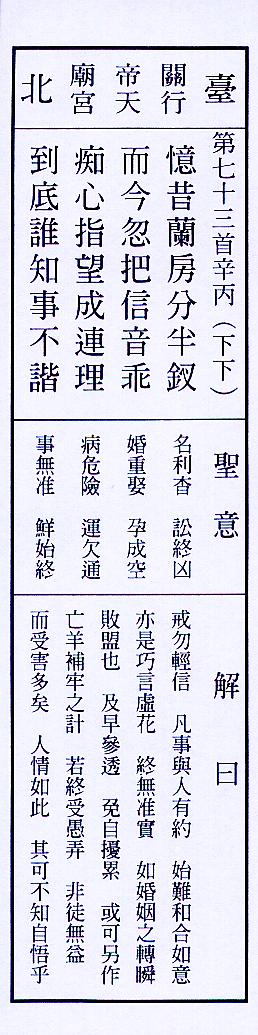 臺北
行天宮
關帝廟
第七十三首辛丙(下下)
憶昔蘭房分半釵
而今忽把信音乖
痴心指望成連理
到底誰知事不諧
聖意
名利杳 訟終凶
婚重娶 孕成空
病危險 運欠通
事無准 鮮始終
解曰
戒勿輕信 凡事與人有約 始難和合如意
亦是巧言虛花 終無准實 如婚姻之轉瞬
敗盟也 及早參透 免自擾累 或可另作
亡羊補牢之計 若終受愚弄 非徒無益
而受害多矣 人情如此 其可不知自悟乎